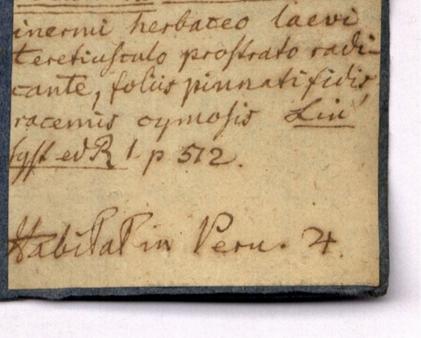 inermi herbaceo laevi
teretiusculo prostrato radi-
cante, foliis pinnatifidis
racemis cymosis Lin
syst ed R 1 p 512.
Habitat in Peru. ♃.